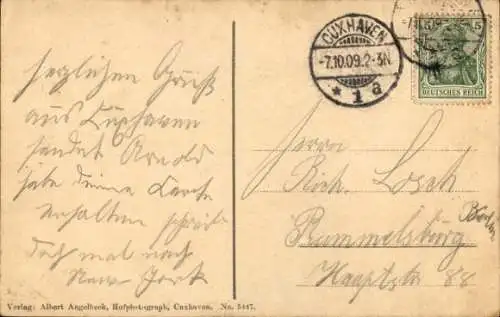 herzlichen Gruß
aus Cuxhaven
sendet Arnold
habe deine Karte
erhalten schreib
doch mal nach
New York
CUXHAVEN
-7.10.09.2-3N.
* 1 a
5
DEUTSCHES REICH
Herrn
Rich. Losch
Rummelsburg
Berlin
Hauptstr 88
Verlag: Albert Angelbeck, Hofphotograph, Cuxhaven. No. 5447.